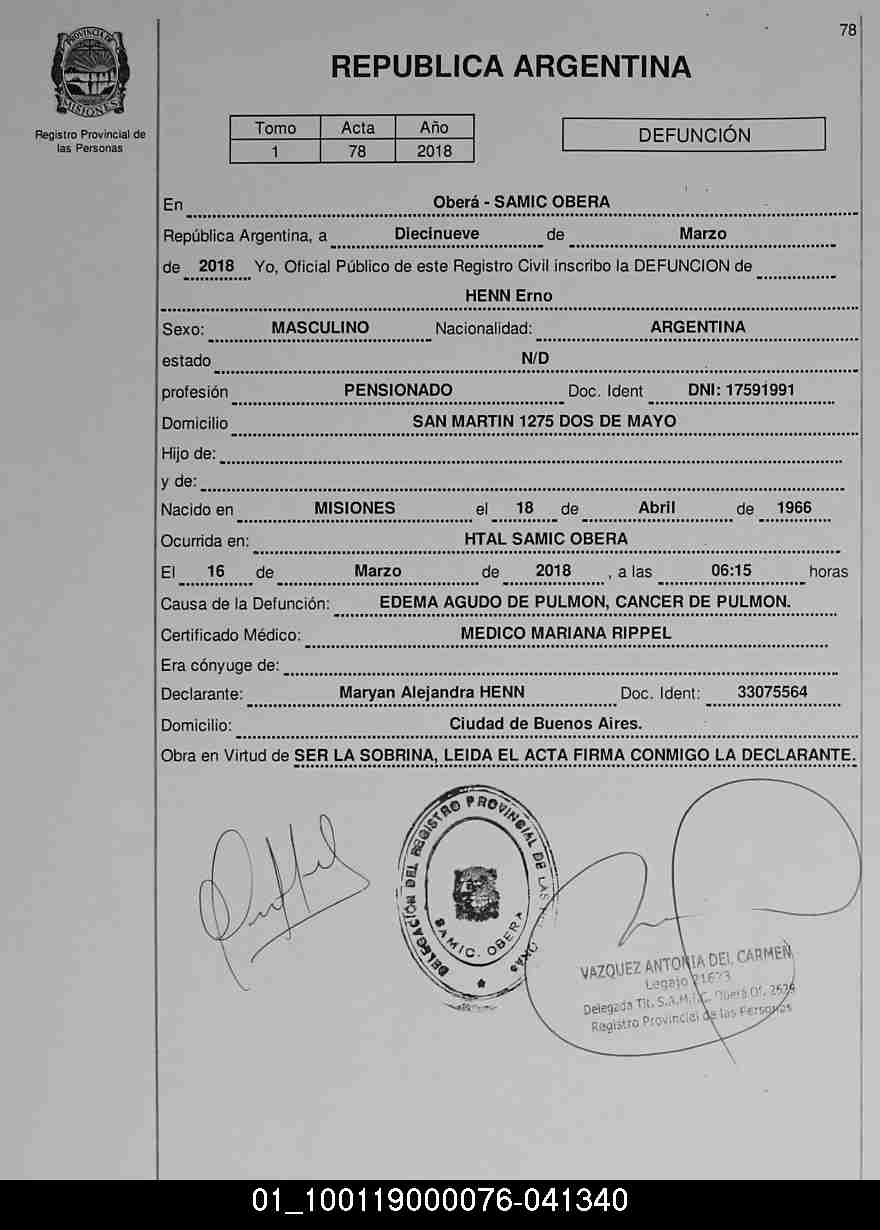 78
PROVINCIA DE
MISIONES
Registro Provincial de
las Personas
REPUBLICA ARGENTINA
Tomo Acta Año
1 78 2018
DEFUNCIÓN
En Oberá - SAMIC OBERA
República Argentina, a Diecinueve de Marzo
de 2018 Yo, Oficial Público de este Registro Civil inscribo la DEFUNCION de
HENN Erno
Sexo: MASCULINO Nacionalidad: ARGENTINA
estado N/D
profesión PENSIONADO Doc. Ident DNI: 17591991
Domicilio SAN MARTIN 1275 DOS DE MAYO
Hijo de:
y de:
Nacido en MISIONES el 18 de Abril de 1966
Ocurrida en: HTAL SAMIC OBERA
El 16 de Marzo de 2018 , a las 06:15 horas
Causa de la Defunción: EDEMA AGUDO DE PULMON, CANCER DE PULMON.
Certificado Médico: MEDICO MARIANA RIPPEL
Era cónyuge de:
Declarante: Maryan Alejandra HENN Doc. Ident: 33075564
Domicilio: Ciudad de Buenos Aires.
Obra en Virtud de SER LA SOBRINA, LEIDA EL ACTA FIRMA CONMIGO LA DECLARANTE.
DELEGACIÓN DEL REGISTRO PROVINCIAL DE LAS
SAMIC. OBERA
VAZQUEZ ANTONIA DEL CARMEN
Legajo
Delegada Tit. S.A.M.I.C. Oberá Of. 2529
Registro Provincial de las Personas
01_100119000076-041340